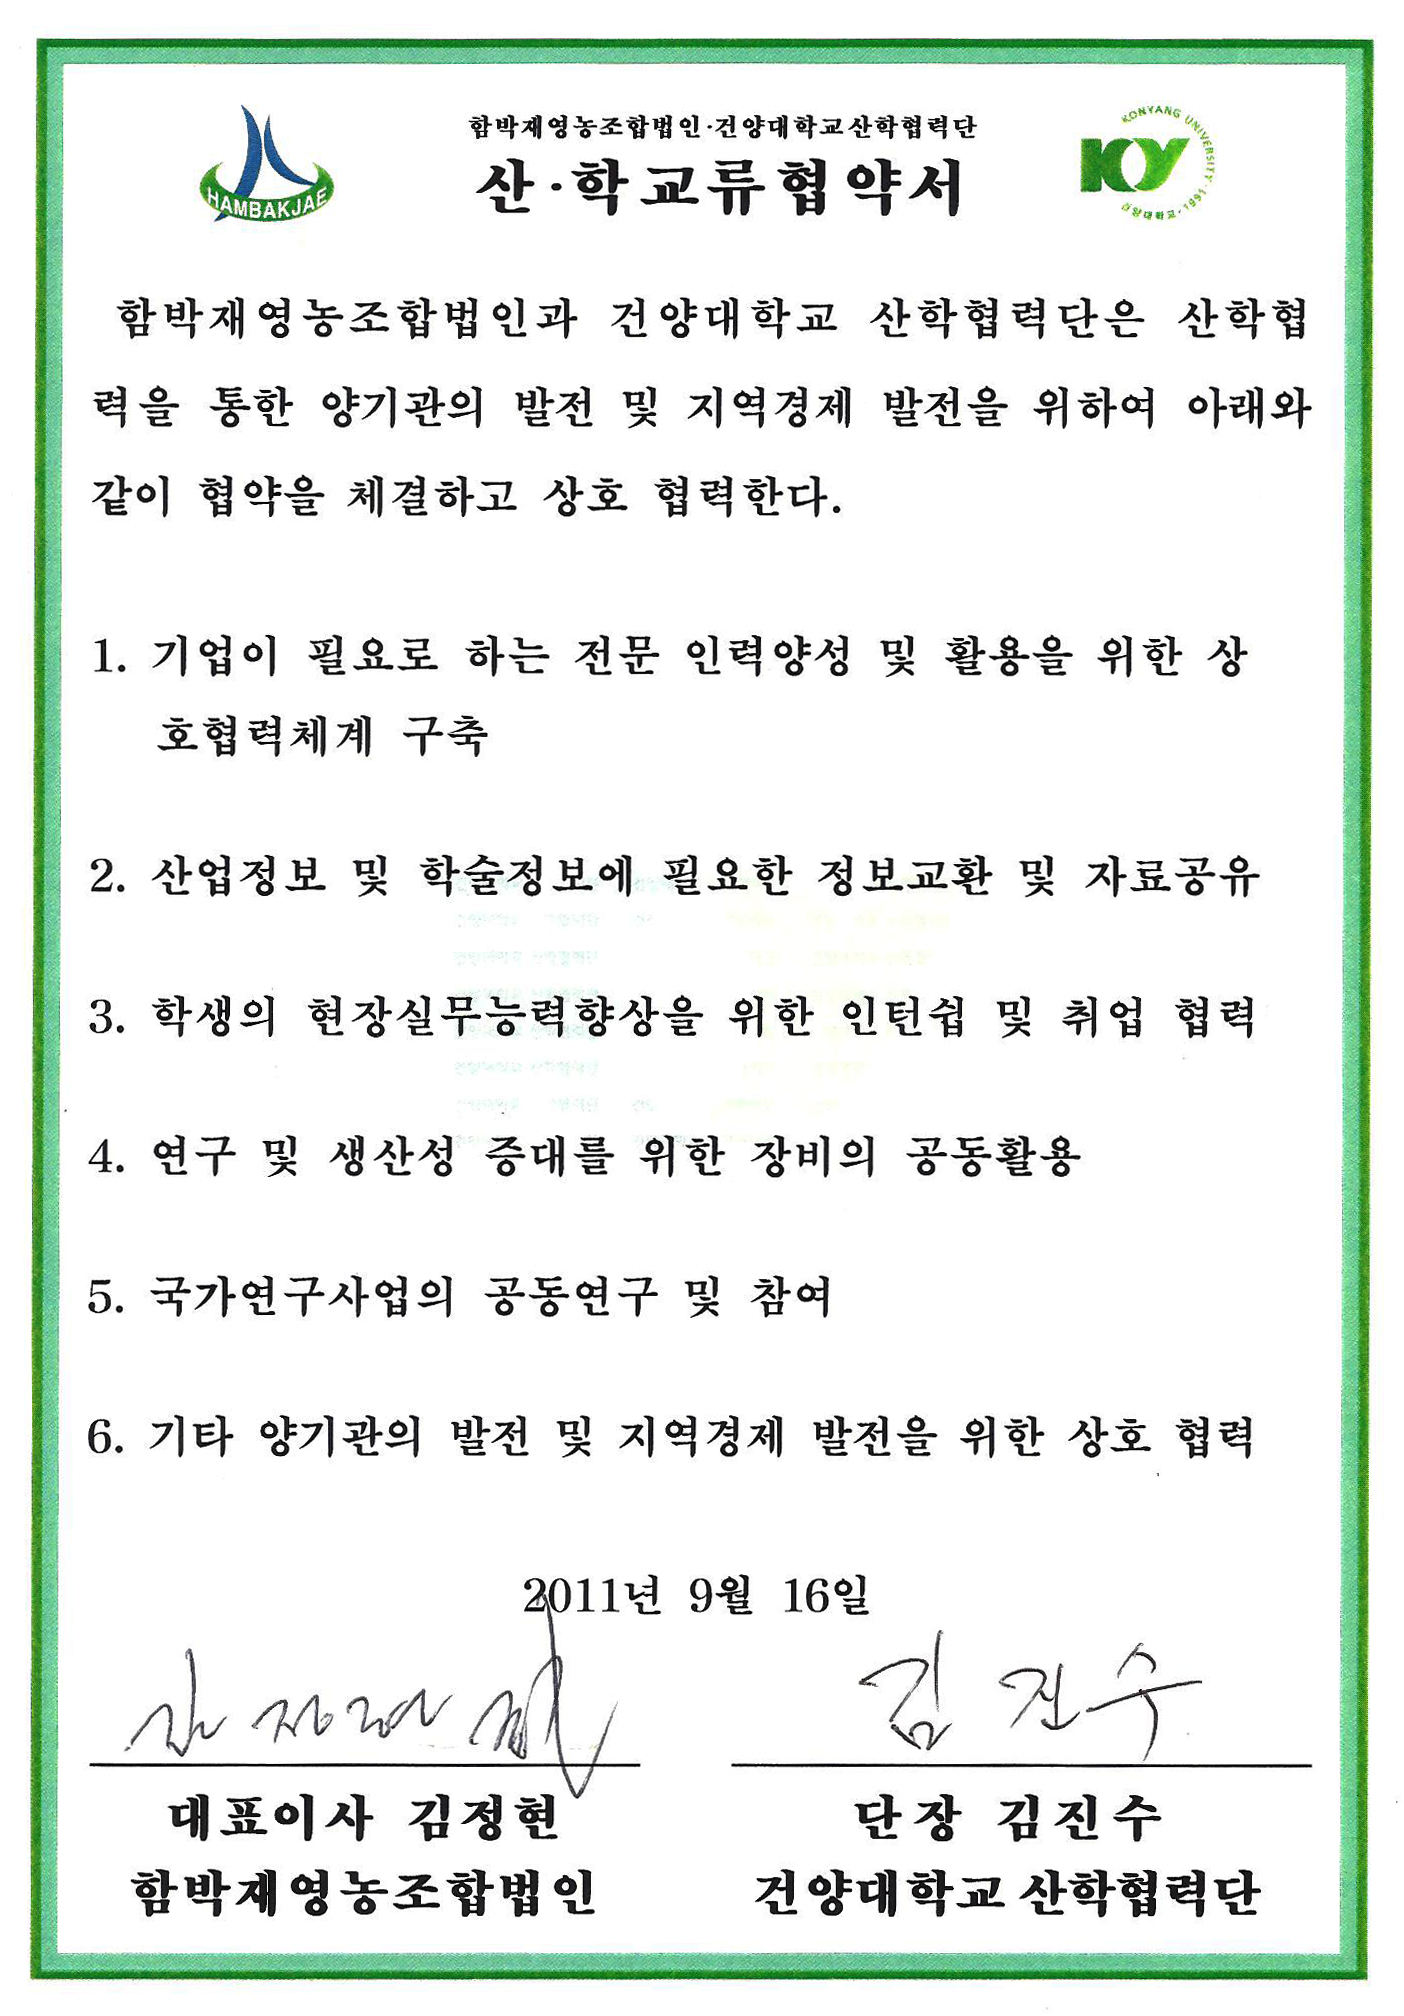 함박재영농조합법인·건양대학교산학협력단
산·학교류협약서
HAMBAKJAE
KONYANG UNIVERSITY·1991
건양대학교
함박재영농조합법인과 건양대학교 산학협력단은 산학협
력을 통한 양기관의 발전 및 지역경제 발전을 위하여 아래와
같이 협약을 체결하고 상호 협력한다.
1. 기업이 필요로 하는 전문 인력양성 및 활용을 위한 상
호협력체계 구축
2. 산업정보 및 학술정보에 필요한 정보교환 및 자료공유
3. 학생의 현장실무능력향상을 위한 인턴쉽 및 취업 협력
4. 연구 및 생산성 증대를 위한 장비의 공동활용
5. 국가연구사업의 공동연구 및 참여
6. 기타 양기관의 발전 및 지역경제 발전을 위한 상호 협력
2011년 9월 16일
김 진수
대표이사 김정현
단장 김진수
함박재영농조합법인
건양대학교 산학협력단